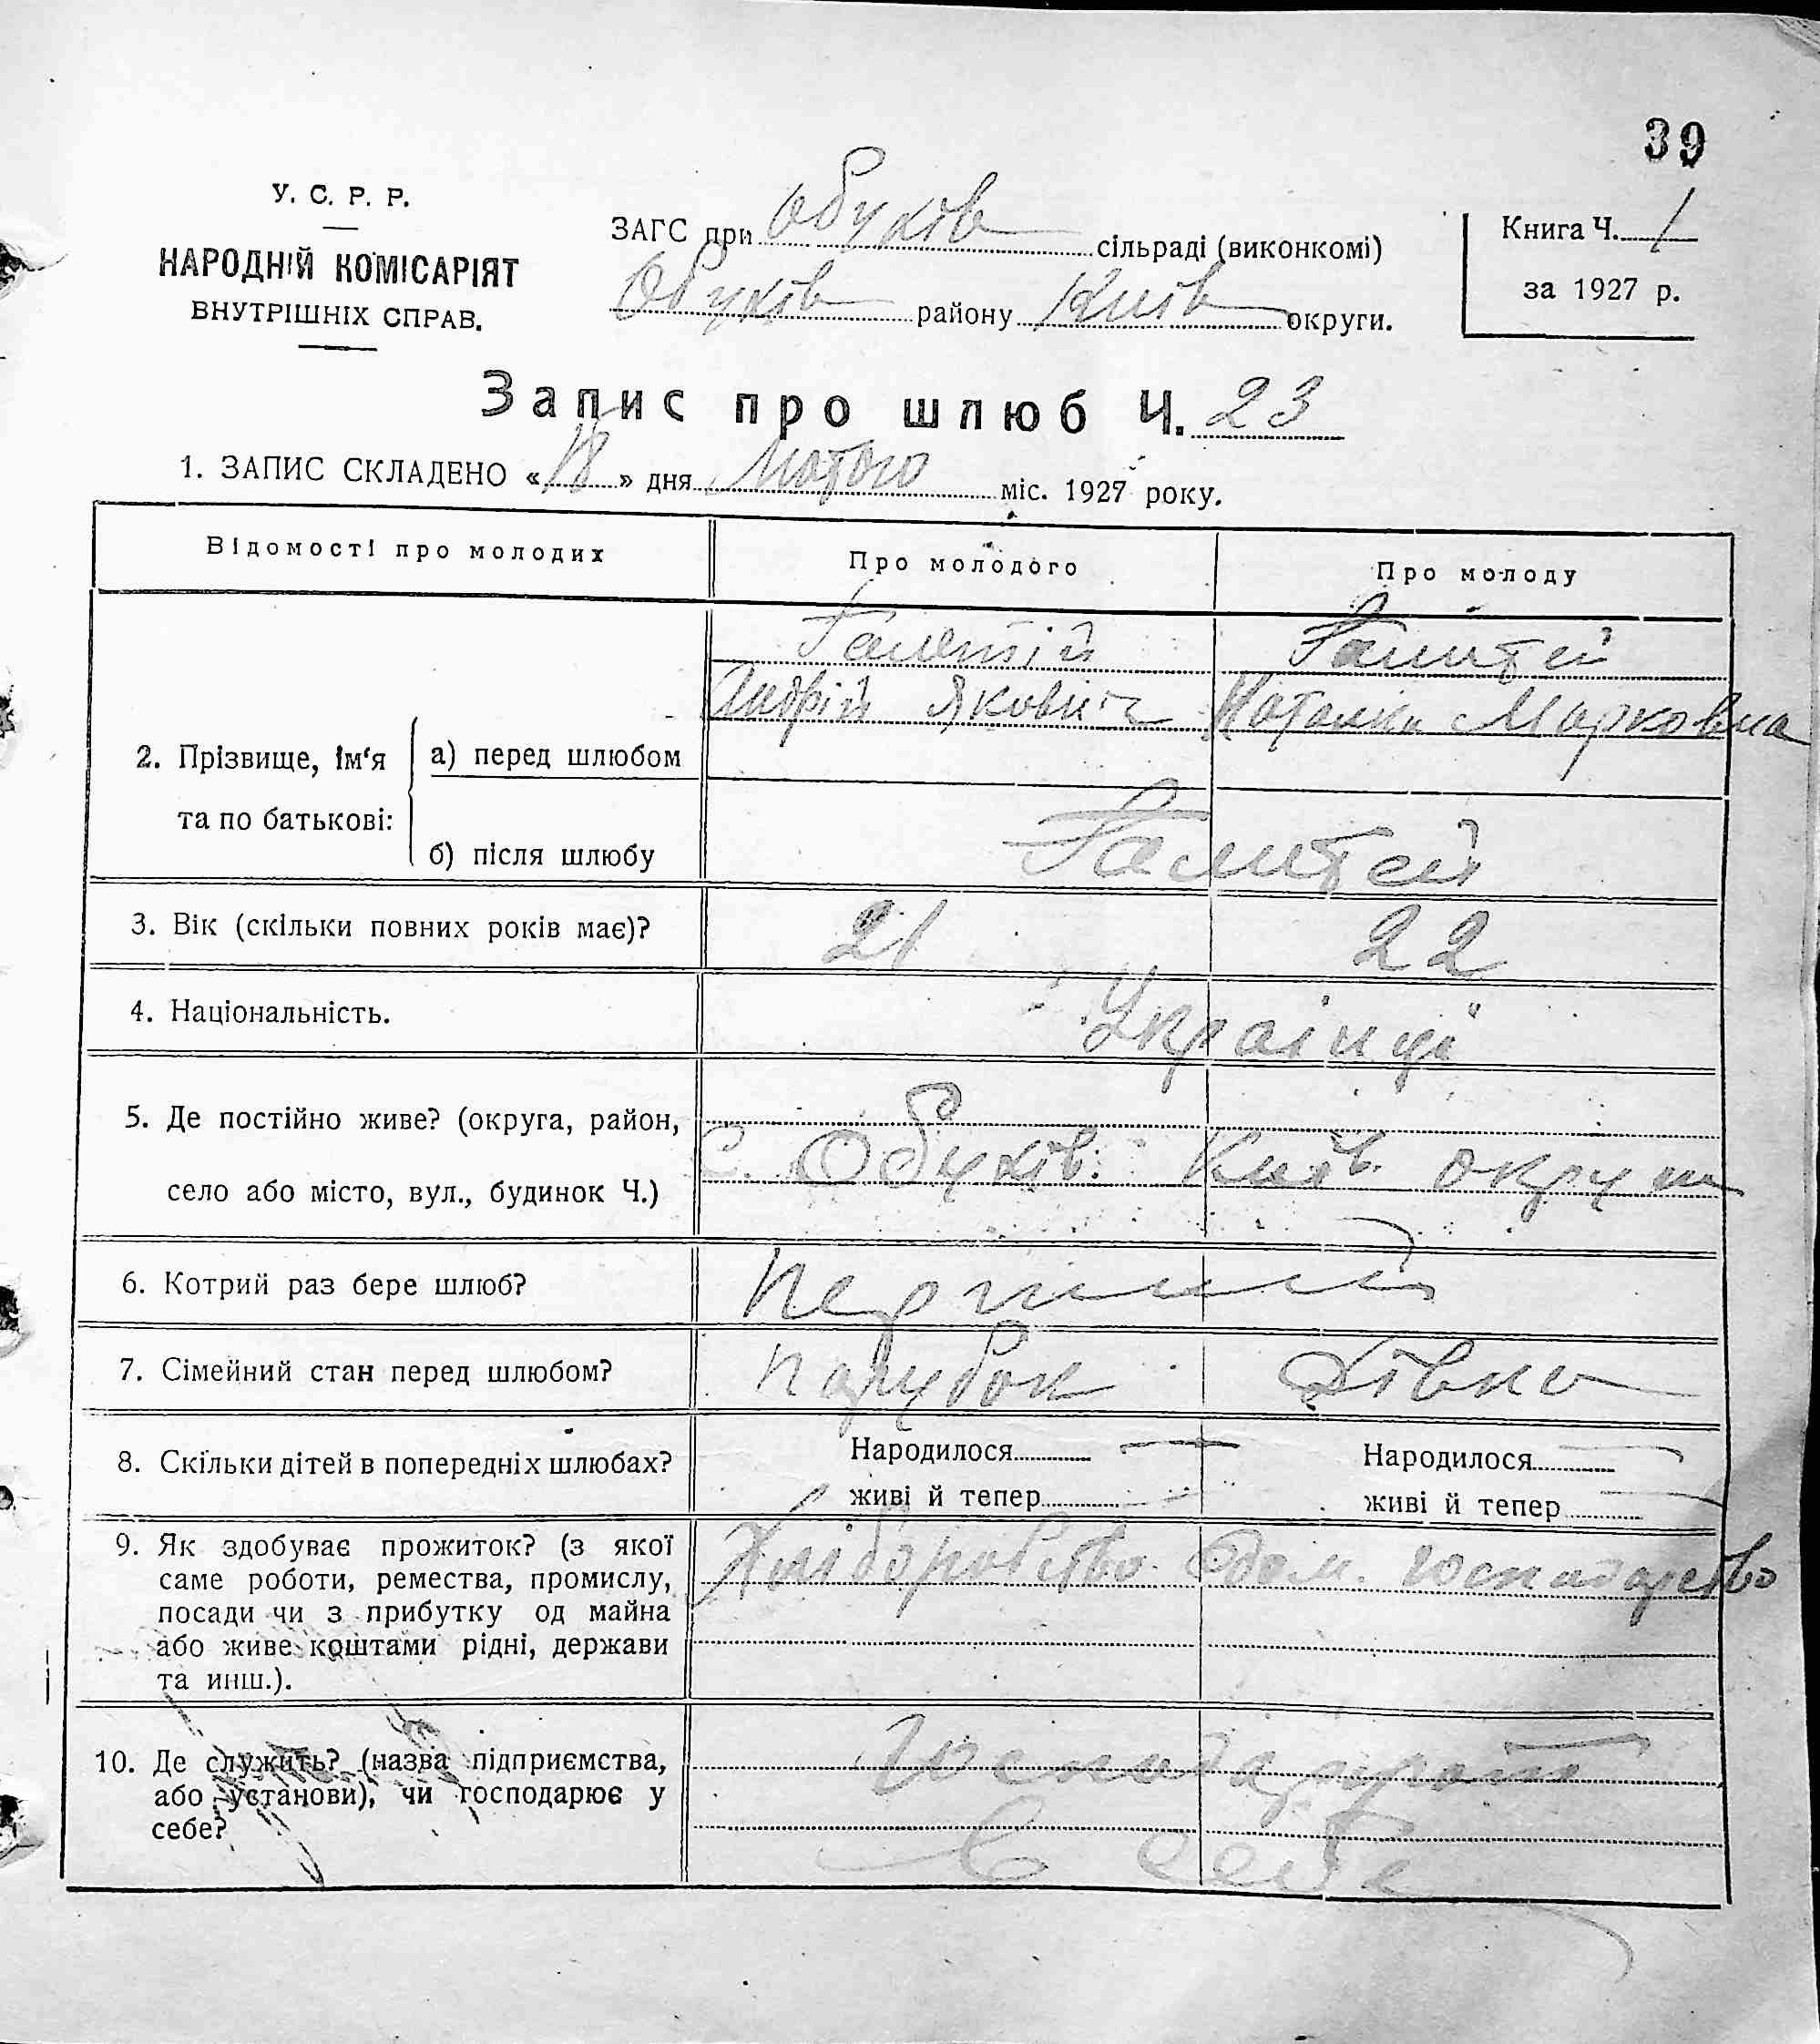 39
У. С. Р. Р.
НАРОДНІЙ КОМІСАРІЯТ
ВНУТРІШНІХ СПРАВ.
ЗАГС при Обухів сільраді (виконкомі)
Обухів району Київ округи.
Книга Ч. 1
за 1927 р.
Запис про шлюб Ч. 23
1. ЗАПИС СКЛАДЕНО «18» дня Лютого міс. 1927 року.
Відомості про молодих Про молодого Про молоду
2. Прізвище, ім'я та по батькові:
а) перед шлюбом
Андрій Якович Наталка Марковна
б) після шлюбу
3. Вік (скільки повних років має)? 21 22
4. Національність. Українці
5. Де постійно живе? (округа, район,
село або місто, вул., будинок Ч.)
с. Обухів. Київ. округи
6. Котрий раз бере шлюб? Перший
7. Сімейний стан перед шлюбом? Парубок Дівка
8. Скільки дітей в попередніх шлюбах? Народилося Народилося
живі й тепер живі й тепер
9. Як здобуває прожиток? (з якої
саме роботи, ремества, промислу,
посади чи з прибутку од майна
або живе коштами рідні, держави
та инш.).
Хліборобство дом. господарство
10. Де служить? (назва підприємства,
або установи), чи господарює у
себе?
в себе